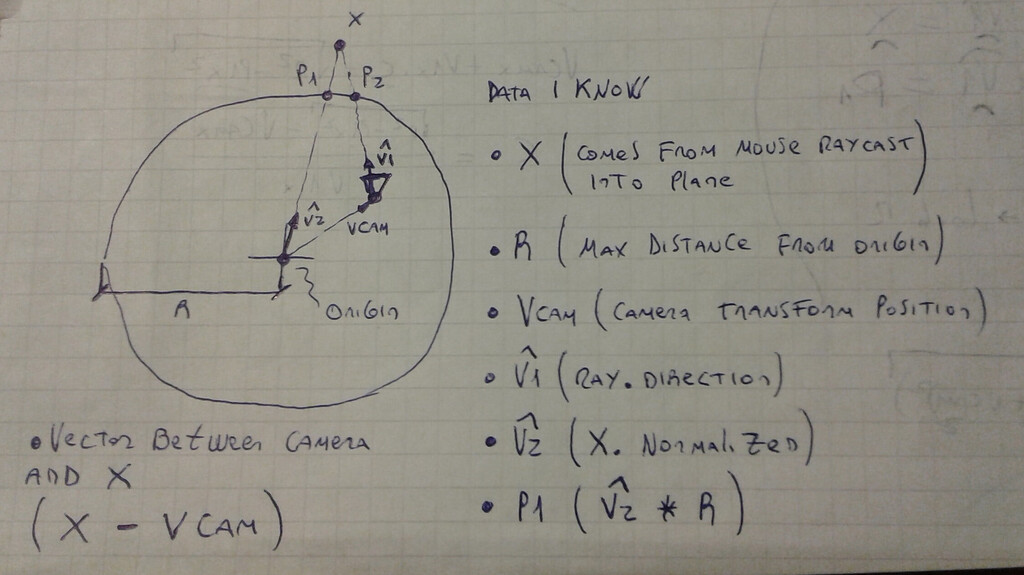 X
P1 P2
V̂1
V̂2
VCAM
R
ORIGIN
DATA I KNOW
• X (COMES FROM MOUSE RAYCAST
INTO PLANE)
• R (MAX DISTANCE FROM ORIGIN)
• VCAM (CAMERA TRANSFORM POSITION)
• V̂1 (RAY.DIRECTION)
• V̂2 (X.NORMALIZED)
• P1 (V̂2 * R)
• VECTOR BETWEEN CAMERA
AND X
(X - VCAM)